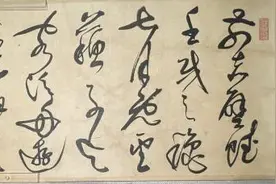 前赤壁賦
壬戌之秋
七月既望
蘇子與
客泛舟遊